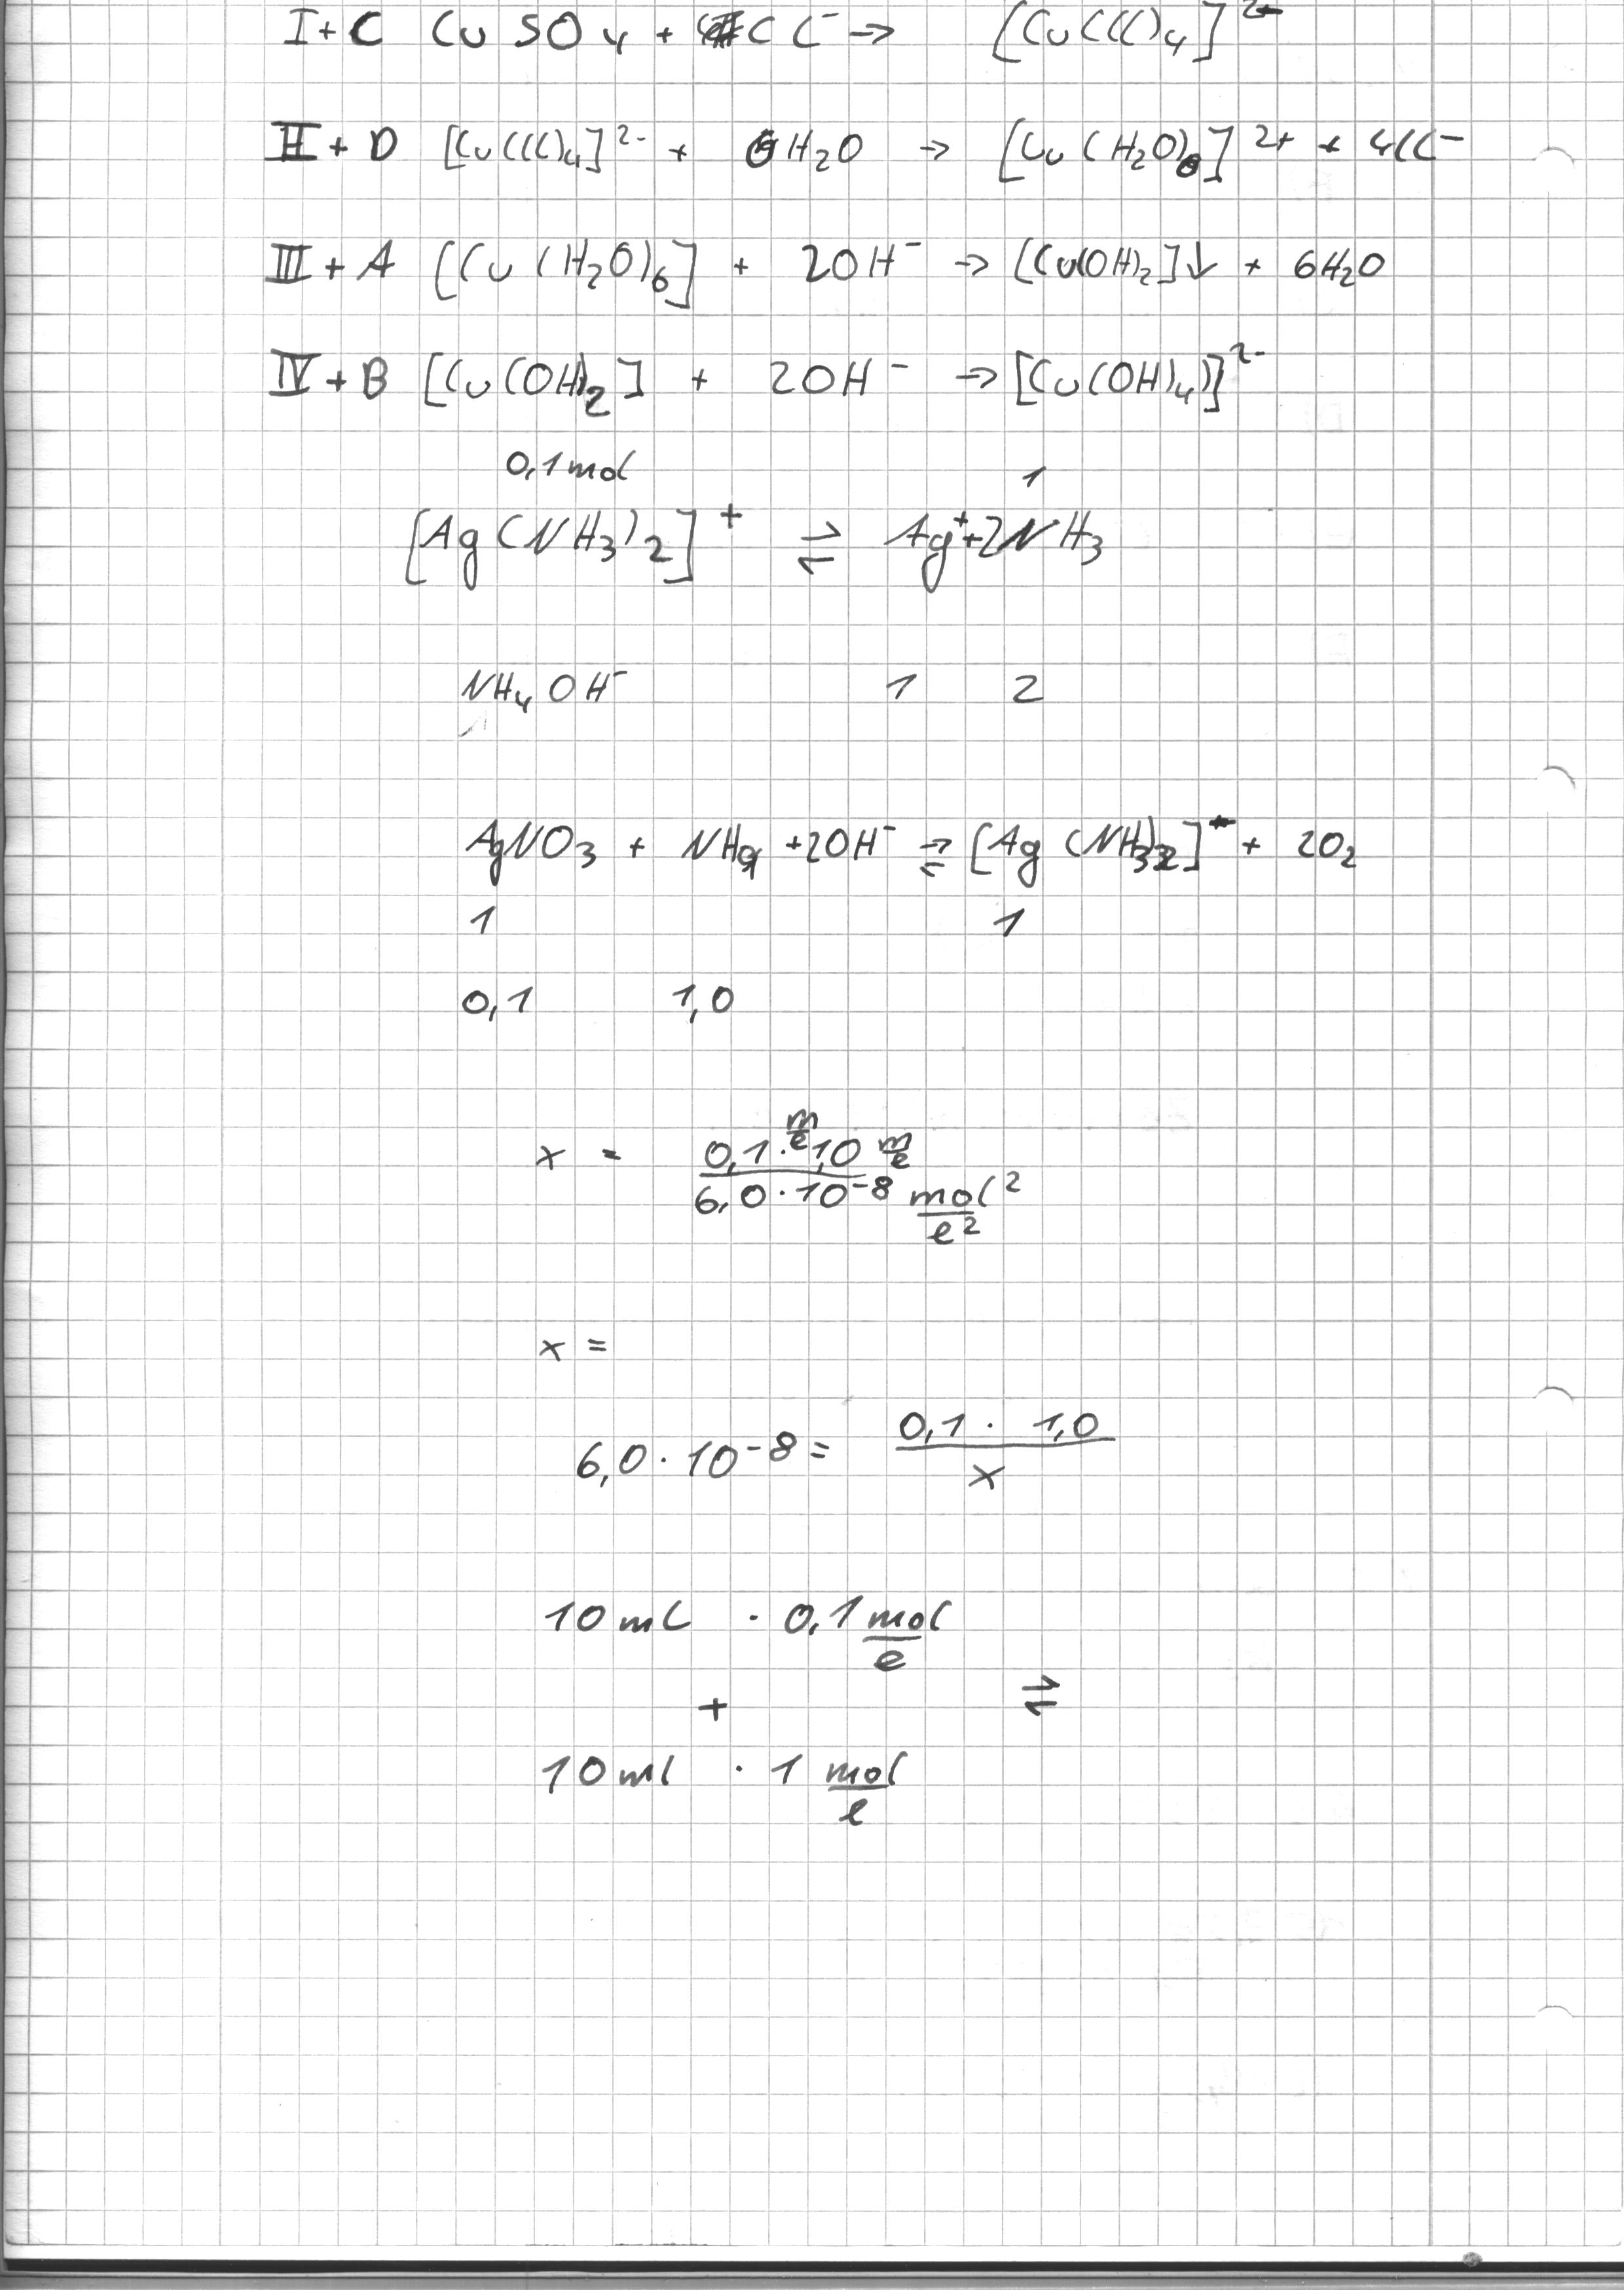 I + C CuSO4 + Cl⁻ → [Cu(Cl)4]²⁻
II + D [Cu(Cl)4]²⁻ + 6H2O → [Cu(H2O)6]²⁺ + 4Cl⁻
III + A [Cu(H2O)6] + 2OH⁻ → [Cu(OH)2]↓ + 6H2O
IV + B [Cu(OH)2] + 2OH⁻ → [Cu(OH)4)]²⁻
0,1mol 1
[Ag(NH3)2]⁺ ⇌ Ag⁺+2NH3
NH4OH⁻ 1 2
AgNO3 + NH4 +2OH⁻ ⇌ [Ag(NH3)2]⁺ + 2O2
1 1
0,1 1,0
x = 0,1 m/l · 1,0 m/l
6,0·10⁻⁸ mol²/l²
x =
6,0·10⁻⁸ = 0,1 · 1,0
x
10 ml · 0,1 mol/l
+ ⇌
10 ml · 1 mol/l